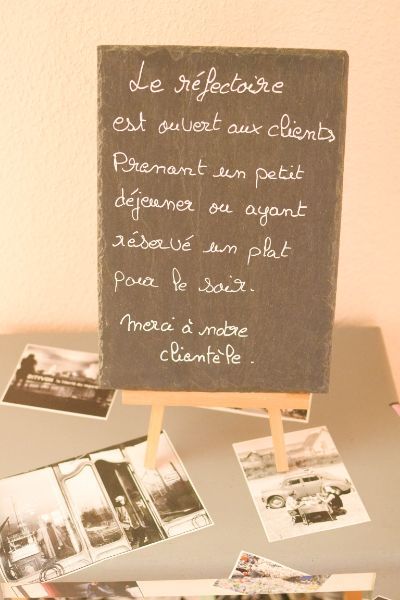 Le réfectoire
est ouvert aux clients
Prenant un petit
déjeuner ou ayant
réservé un plat
pour le soir.
merci à notre
clientèle.